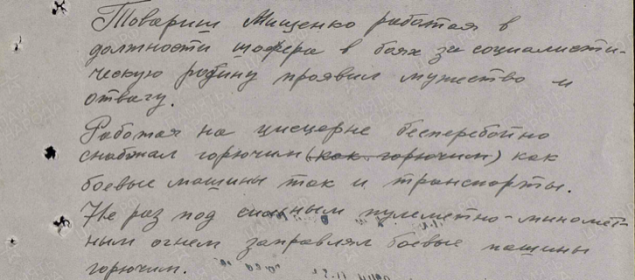 Товарищ Мищенко работая в
должности шофера в боях за социалисти-
ческую родину проявил мужество и
отвагу.
Работая на цисцерне бесперебойно
снабжал горючим (как горючим) как
боевые машины так и транспорты.
Не раз под сильным пулеметно-миномет-
ным огнем заправлял боевые машины
горючим.